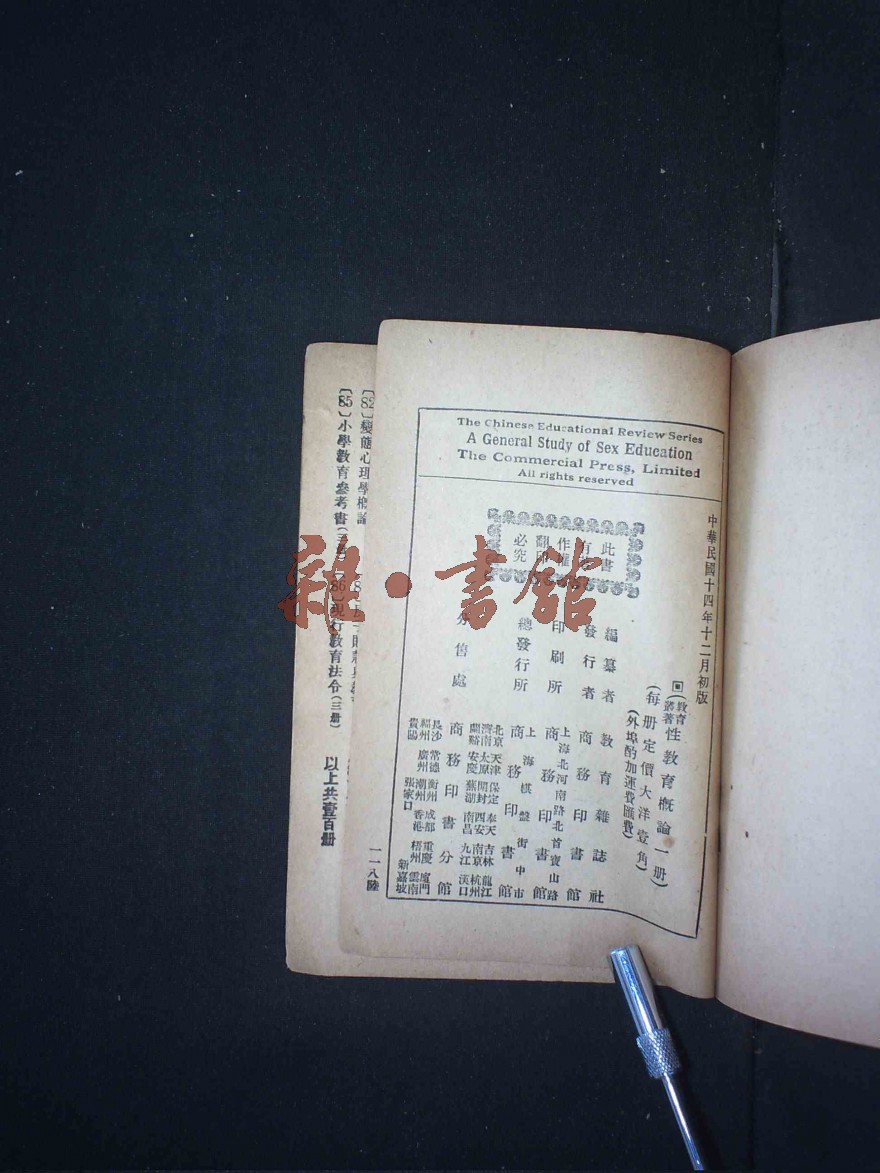 The Chinese Educational Review Series
A General Study of Sex Education
The Commercial Press, Limited
All rights reserved
中華民國十四年十二月初版
(教育叢著)性教育概論一册
(每册定價大洋壹角)
(外埠酌加運費匯費)
此書
作權
翻印
必究
編纂者 教育雜誌社
發行者 商務印書館
印刷所 上海北河南路北首寶山路 商務印書館
總發行所 上海棋盤街中市 商務印書館
分售處 商務印書分館
北京 天津 保定 奉天 吉林 龍江
濟南 太原 開封 西安 南京 杭州
蘭谿 安慶 蕪湖 南昌 九江 漢口
長沙 常德 衡州 成都 重慶 廈門
福州 廣州 潮州 香港 梧州 雲南
貴陽 張家口 新嘉坡
一一八陸
〔82〕變態心理學概論
〔85〕小學教育參考書
〔86〕現行教育法令(三册)
以上共壹百册
雜·書館